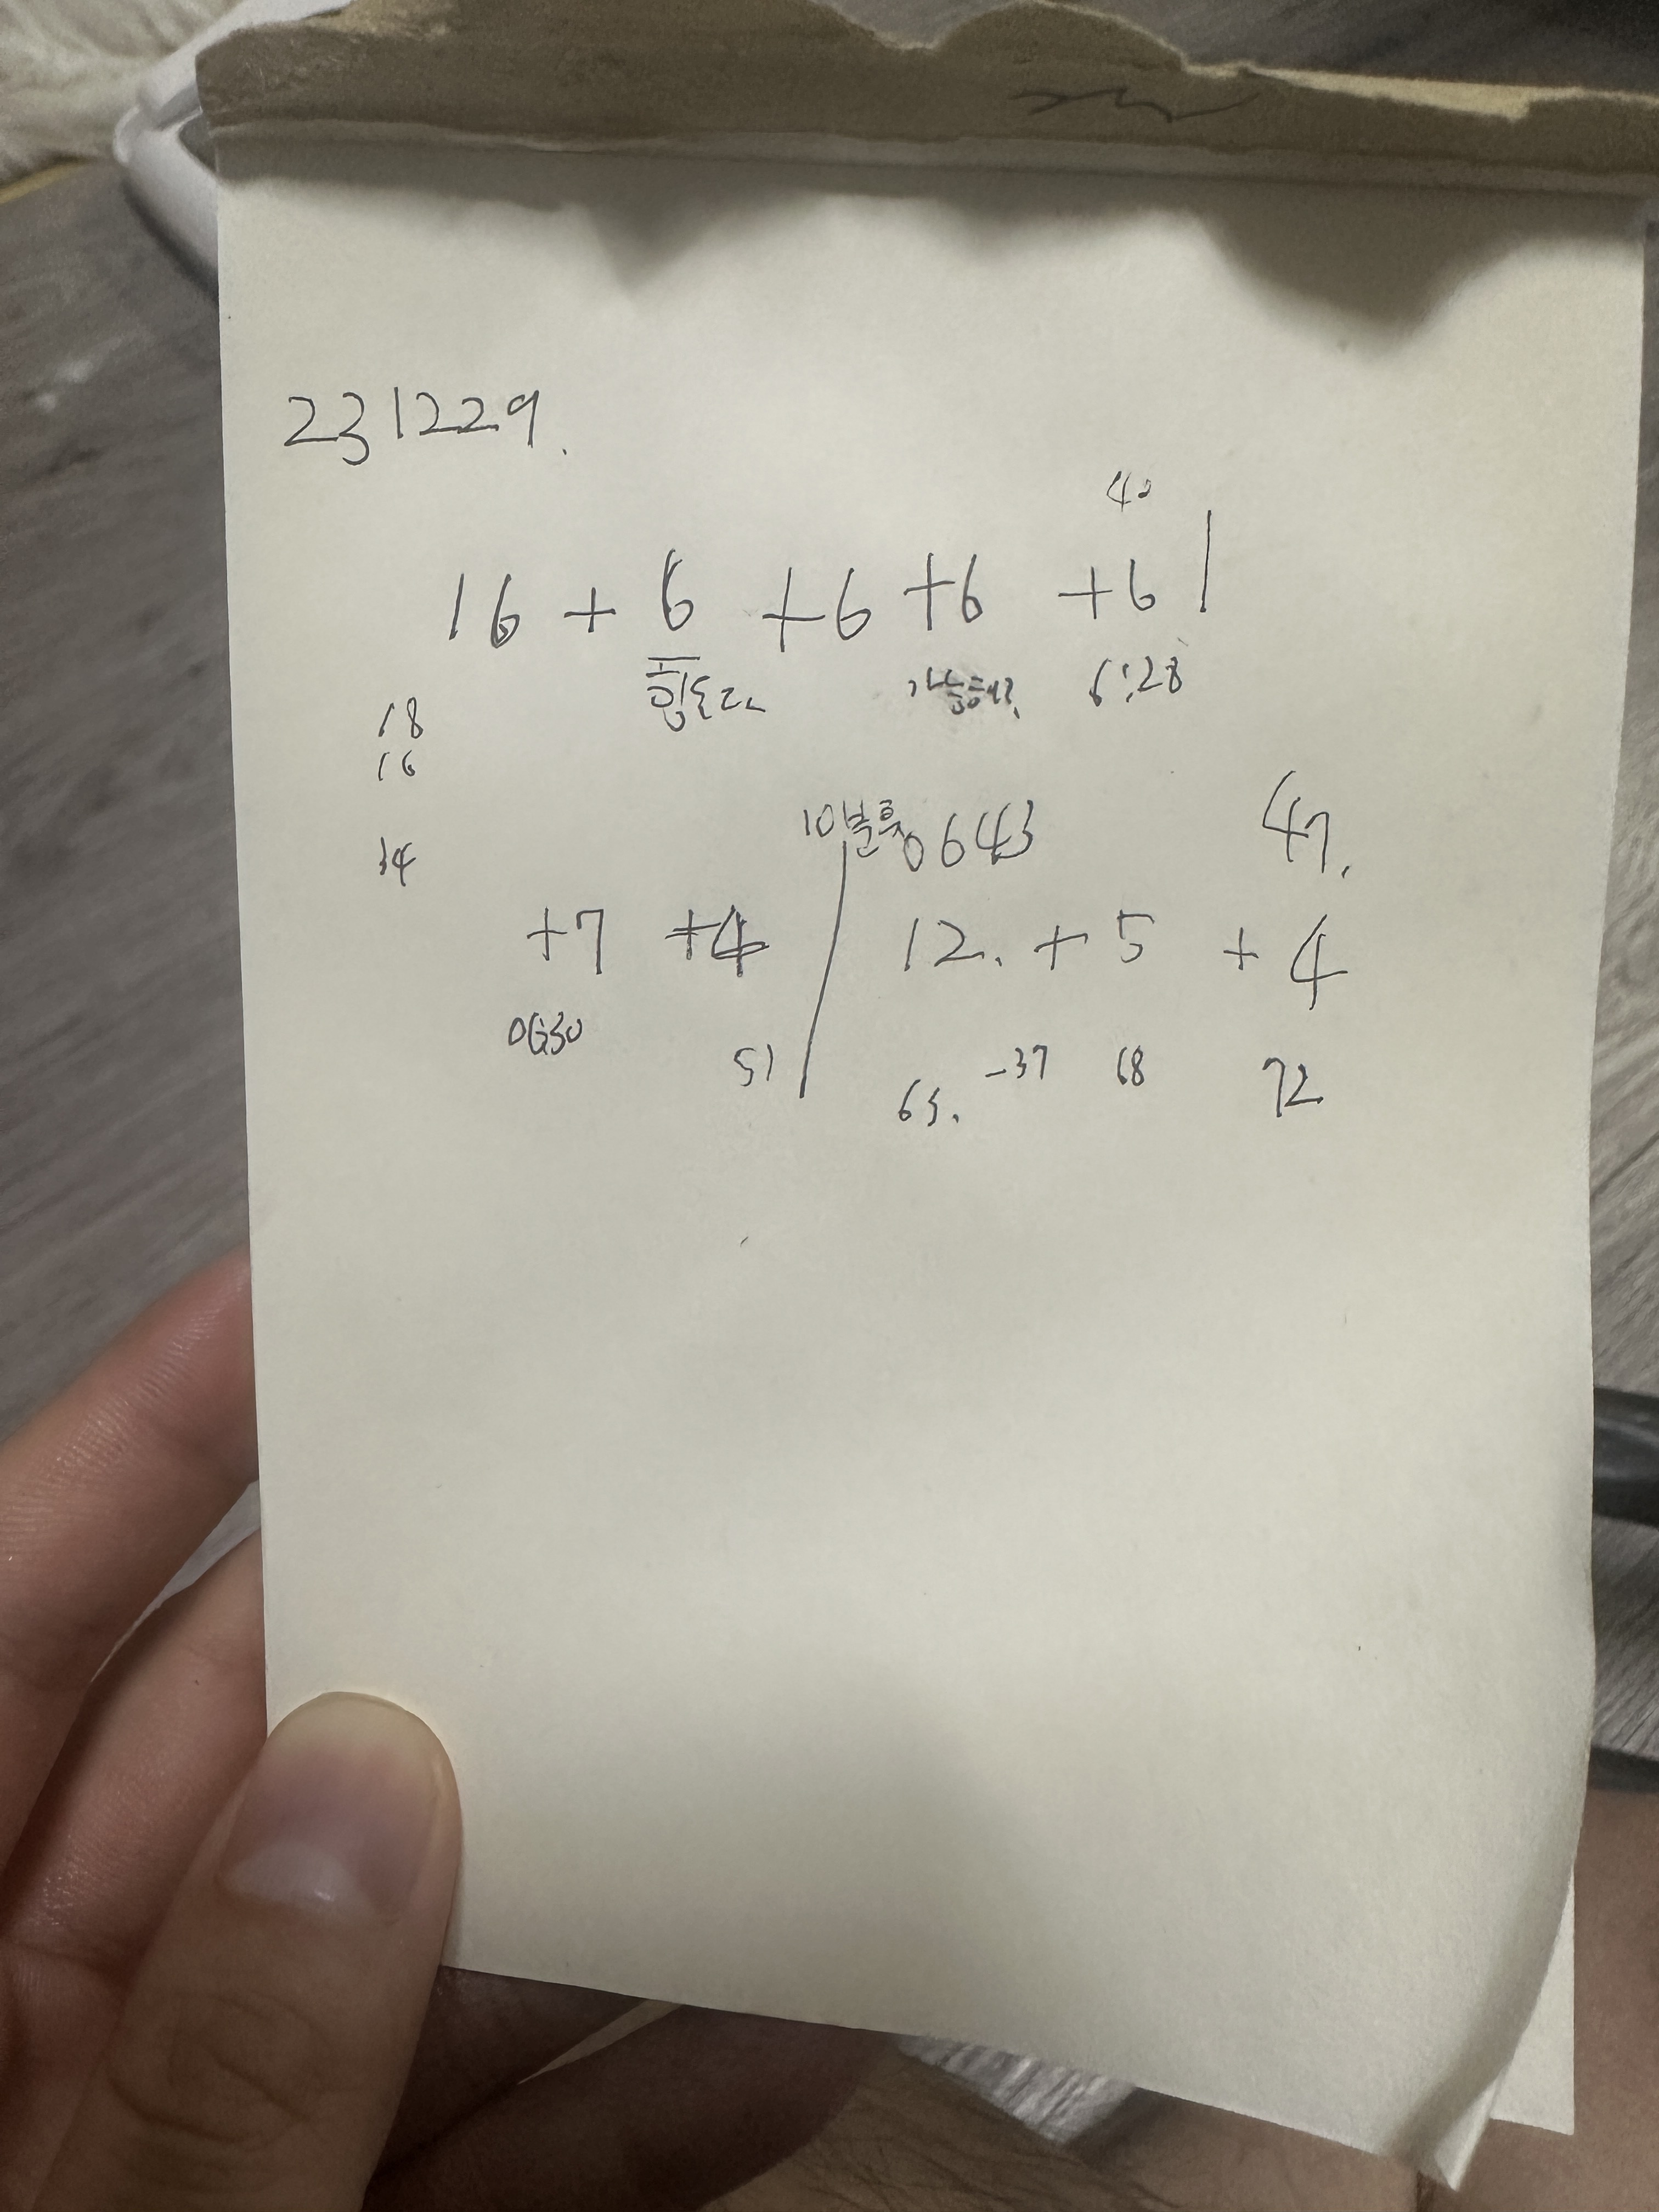 231229.
40
16 + 6 + 6 + 6 + 6 |
힘든다 6:28
18
16
10분휴 0643 47.
34
+7 +4 12. + 5 + 4
0630
51 63. -37 68 72